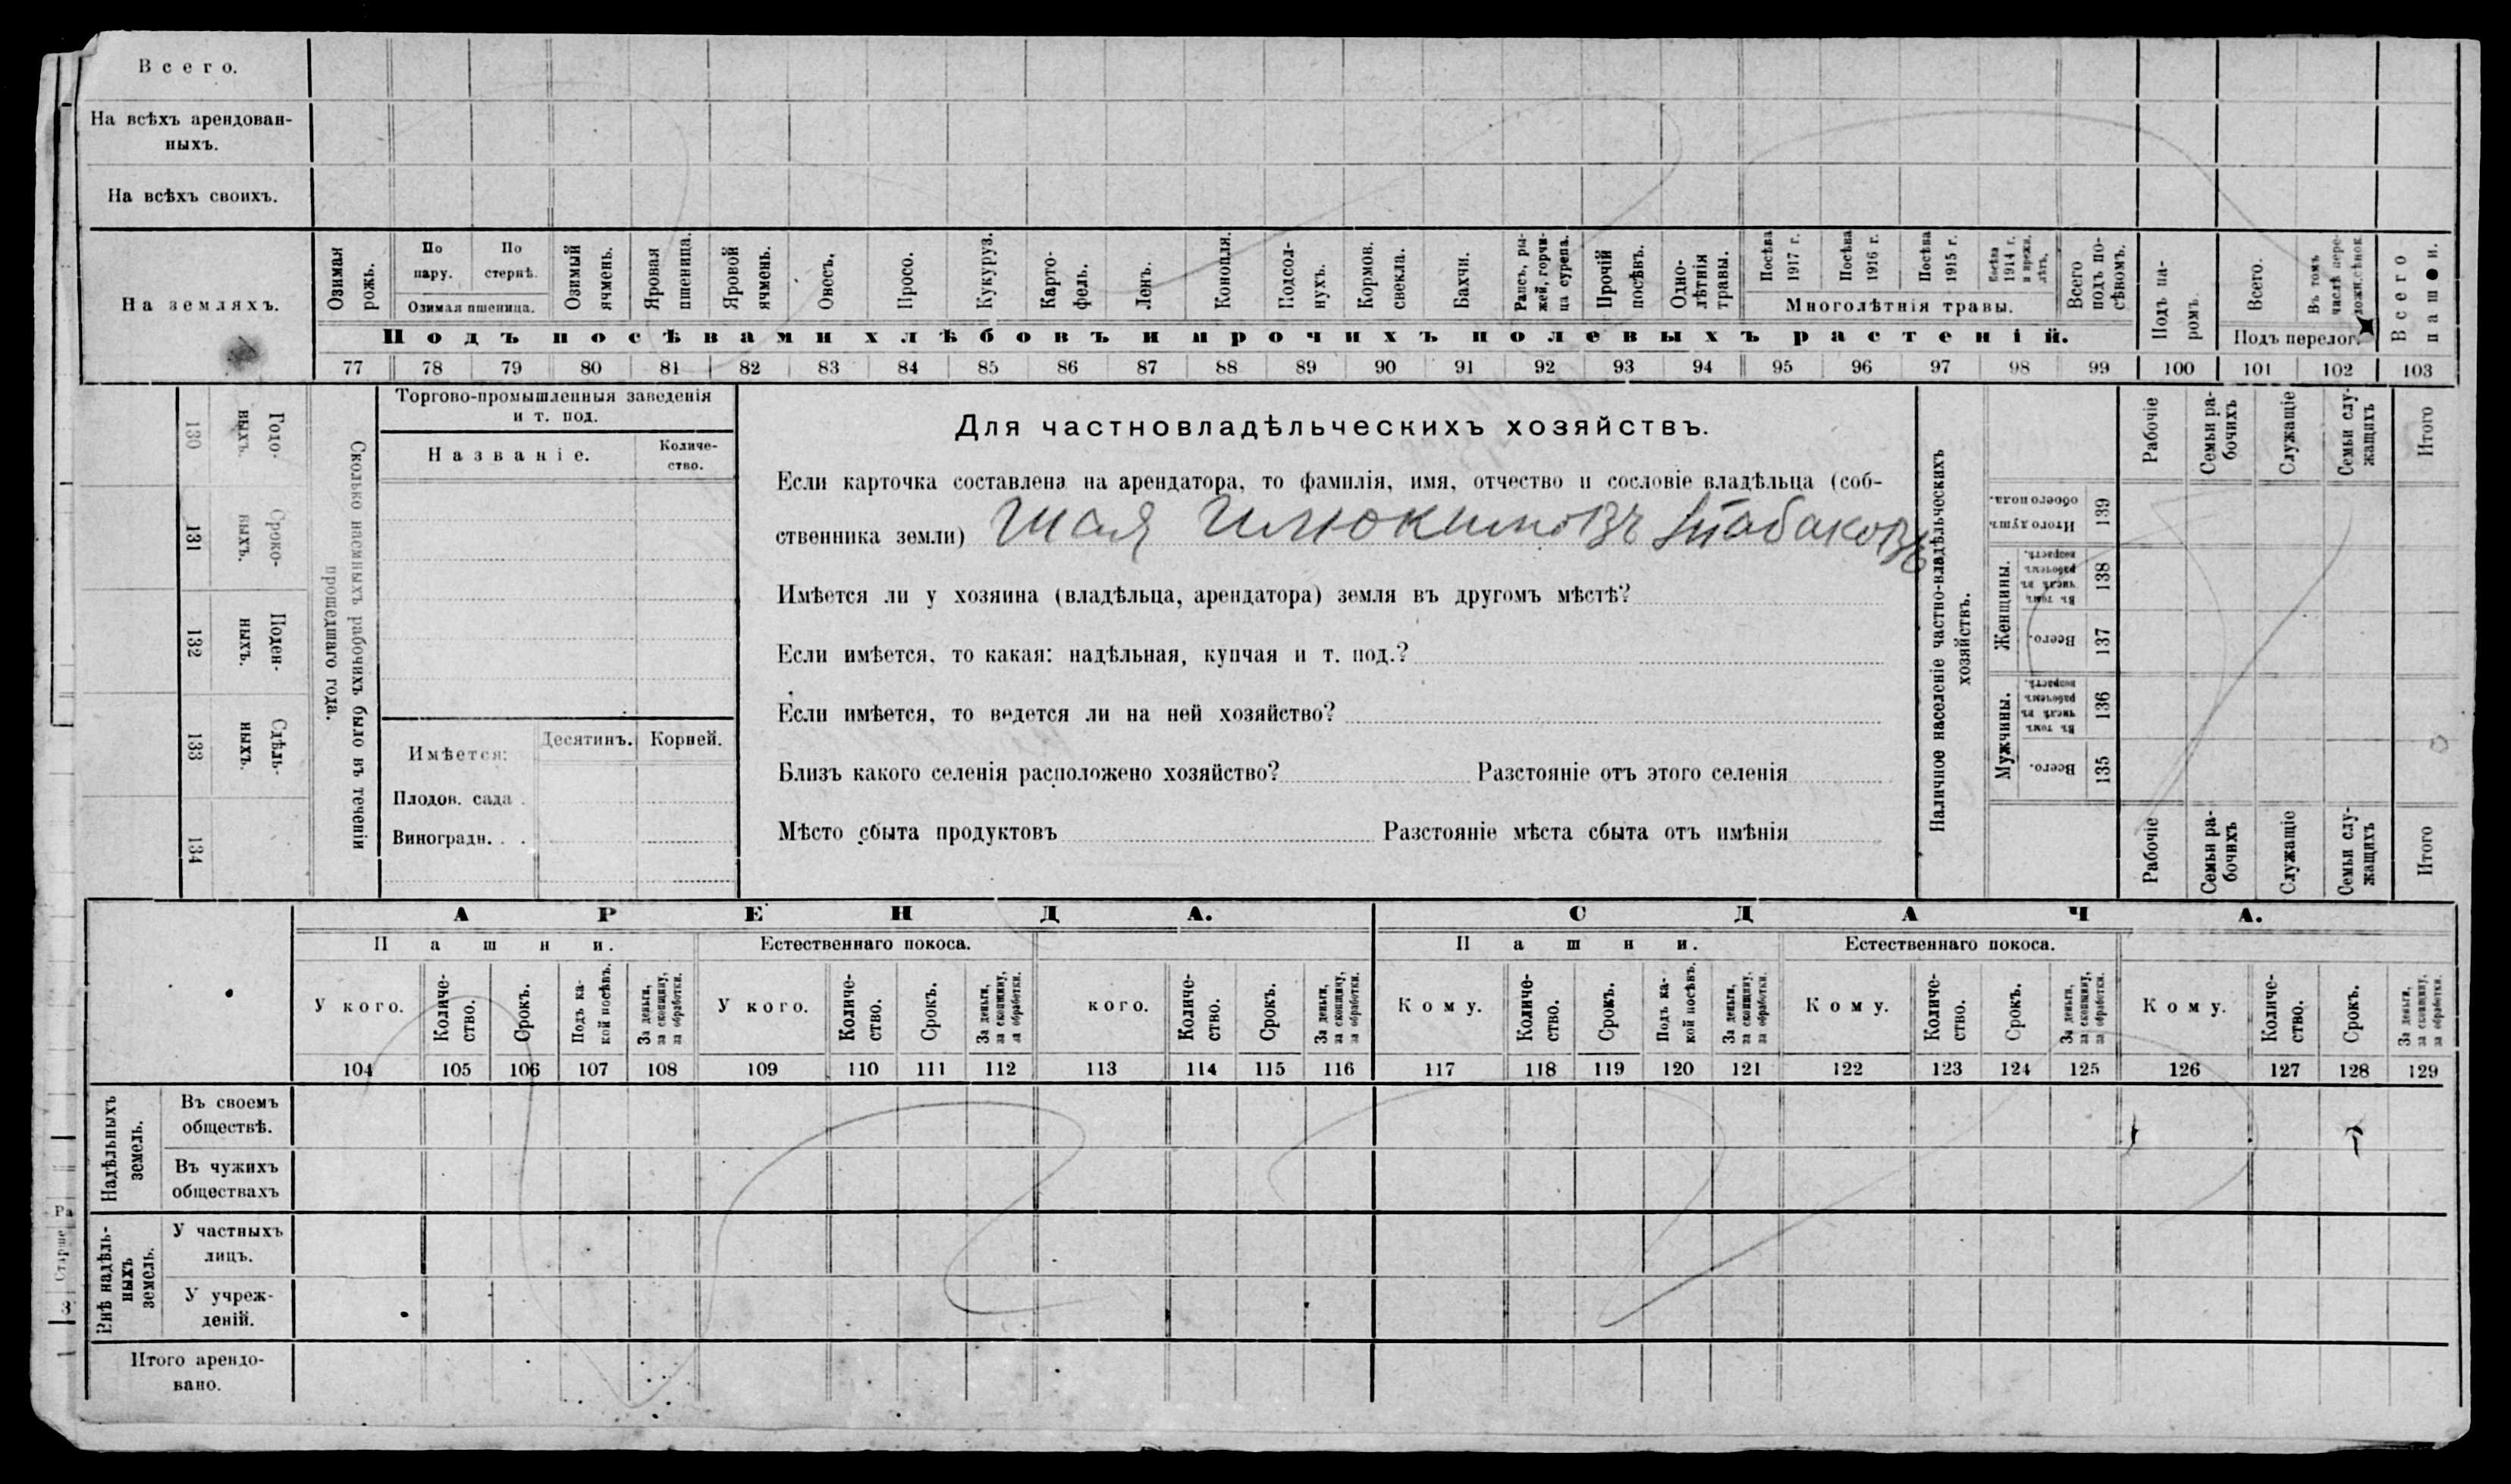 Всего.
На всѣхъ арендован-
ныхъ.
На всѣхъ своихъ.
На земляхъ.
Озимая рожь.
По пару.
По стернѣ.
Озимая пшеница.
Озимый ячмень.
Яровая пшеница.
Яровой ячмень.
Овесъ.
Просо.
Кукуруз.
Карто-
фель.
Ленъ.
Конопля.
Подсол-
нухъ.
Кормов. свекла.
Бахчи.
Рапсъ, ры-
жей, горчи-
ца сурепа.
Прочій посѣвъ.
Одно-
лѣтнія травы.
Посѣва 1917 г.
Посѣва 1916 г.
Посѣва 1915 г.
Посѣва 1914 г. и прежн. лѣтъ.
Многолѣтнія травы.
Всего подъ по-
сѣвомъ.
Подъ посѣвами хлѣбовъ и прочихъ полевыхъ растеній.
Подъ па-
ромъ.
Всего.
Въ томъ числѣ пере-
Подъ перелог.
Всего пашни.
77 78 79 80 81 82 83 84 85 86 87 88 89 90 91 92 93 94 95 96 97 98 99 100 101 102 103
130 Годо-
выхъ.
131 Сроко-
выхъ.
132 Поден-
ныхъ.
133 Сдѣль-
ныхъ.
134
Сколько наемныхъ рабочихъ было въ теченіи
прошедшаго года.
Торгово-промышленныя заведенія
и т. под.
Названіе.
Количе-
ство.
Имѣется:
Десятинъ.
Корней.
Плодов. сада .
Виноградн. . .
Для частновладѣльческихъ хозяйствъ.
Если карточка составлена на арендатора, то фамилія, имя, отчество и сословіе владѣльца (соб-
ственника земли) Табаковъ
Имѣется ли у хозяина (владѣльца, арендатора) земля въ другомъ мѣстѣ?
Если имѣется, то какая: надѣльная, купчая и т. под.?
Если имѣется, то ведется ли на ней хозяйство?
Близъ какого селенія расположено хозяйство? Разстояніе отъ этого селенія
Мѣсто сбыта продуктовъ Разстояніе мѣста сбыта отъ имѣнія
Наличное населеніе частно-владѣльческихъ
хозяйствъ.
Рабочіе
Семьи ра-
бочихъ
Служащіе
Семьи слу-
жащихъ
Итого
Итого душъ обоего пола. 139
Женщины.
Въ томъ числѣ въ рабочемъ возрастѣ. 138
Всего. 137
Мужчины.
Въ томъ числѣ въ рабочемъ возрастѣ. 136
Всего. 135
Рабочіе
Семьи ра-
бочихъ
Служащіе
Семьи слу-
жащихъ
Итого
АРЕНДА.
СДАЧА.
Пашни.
Естественнаго покоса.
Пашни.
Естественнаго покоса.
У кого.
Количе-
ство.
Срокъ.
Подъ ка-
кой посѣвъ.
За деньги, за скопщину, за обработки.
У кого.
Количе-
ство.
Срокъ.
За деньги, за скопщину, за обработки.
кого.
Количе-
ство.
Срокъ.
За деньги, за скопщину, за обработки.
Кому.
Количе-
ство.
Срокъ.
Подъ ка-
кой посѣвъ.
За деньги, за скопщину, за обработки.
Кому.
Количе-
ство.
Срокъ.
За деньги, за скопщину, за обработки.
Кому.
Количе-
ство.
Срокъ.
За деньги, за скопщину, за обработки.
104 105 106 107 108 109 110 111 112 113 114 115 116 117 118 119 120 121 122 123 124 125 126 127 128 129
Надѣльныхъ
земель.
Въ своемъ
обществѣ.
Въ чужихъ
обществахъ
Внѣ надѣль-
ныхъ
земель.
У частныхъ
лицъ.
У учреж-
деній.
Итого арендо-
вано.
Ра
Старше
3